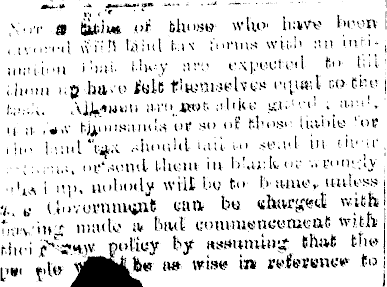 Nor a tithe of those who have been
favored with land tax forms with an inti-
mation that they are expected to fill
them up have felt themselves equal to the
task. All men are not alike gifted; and,
if a few thousands or so of those liable for
the land tax should fail to send in their
returns, or send them in blank or wrongly
filled up, nobody will be to blame, unless
the Government can be charged with
having made a bad commencement with
their new policy by assuming that the
people be as wise in reference to